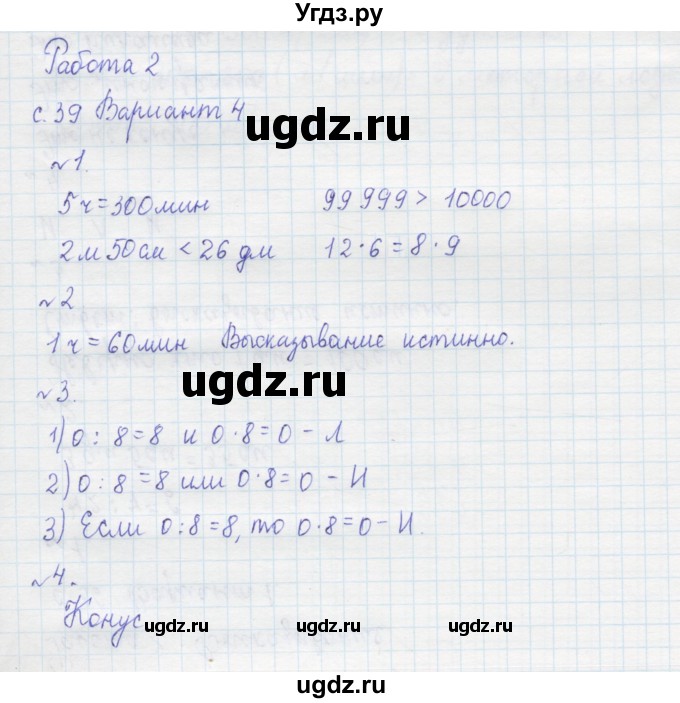 Угдз.ру
Работа 2
с. 39 Вариант 4
ugdz.ru
№1.
5 ч = 300 мин 99 999 > 10000
2 м 50 см < 26 дм 12 · 6 = 8 · 9
№2
1 ч = 60 мин Высказывание истинно.
ugdz.ru
№3.
1) 0 : 8 = 8 и 0 · 8 = 0 – Л
2) 0 : 8 = 8 или 0 · 8 = 0 – И
3) Если 0 : 8 = 8, то 0 · 8 = 0 – И.
№4.
Конус
ugdz.ru ugdz.ru
ugdz.ru